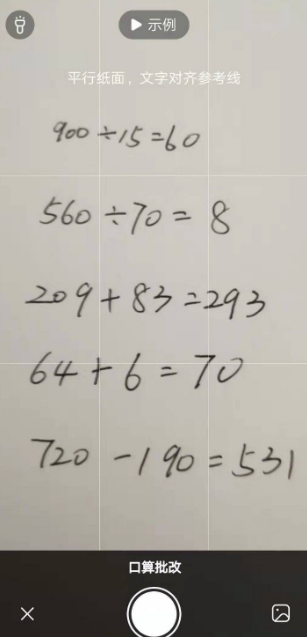 示例
平行纸面，文字对齐参考线
900÷15=60
560÷70=8
209+83=293
64+6=70
720-190=531
口算批改